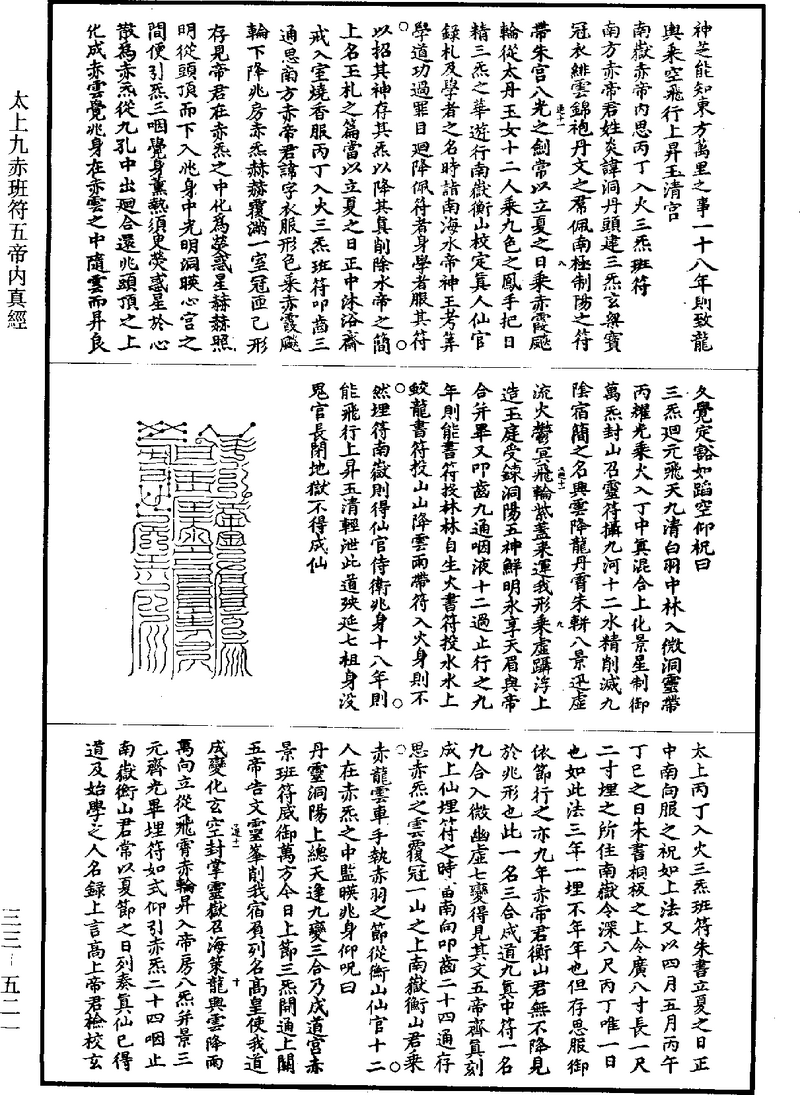 神芝能知東方萬里之事一十八年則致龍
輿乘空飛行上昇玉清宮
南嶽赤帝內思丙丁入火三炁班符
南方赤帝君姓炎諱洞丹頭建三炁玄梁寶
冠衣緋雲錦袍丹文之帬佩南極制陽之符
帶朱宮八光之劍常以立夏之日乘赤霞飈
輪從太丹玉女十二人乘九色之鳳手把日
精三炁之華遊行南嶽衡山校定真人仙官
錄札及學者之名時詣南海水帝神王考筭
學道功過罪目廻降佩符者身學者服其符
以招其神存其炁以降其真削除水帝之簡
上名玉札之篇當以立夏之日正中沐浴齋
戒入室燒香服丙丁入火三炁班符叩齒三
通思南方赤帝君諱字衣服形色乘赤霞飈
輪下降兆房赤炁赫赫覆滿一室冠匝己形
存見帝君在赤炁之中化為熒惑星赫赫照
明從頭頂而下入兆身中光明洞暎心宮之
間便引炁三咽覺身薰熱須臾熒惑星於心
散為赤炁從九孔中出廻合還兆頭頂之上
化成赤雲覺兆身在赤雲之中隨雲而昇良
久覺定豁如蹈空仰祝曰
三炁廻元飛天九清白羽中林入微洞靈帶
丙燿光乘火入丁中真混合上化景星制御
萬炁封山召靈符攝九河十二水精削滅九
陰宿簡之名興雲降龍丹霄朱軿八景迅虛
流火鬱冥飛輪紫蓋來運我形乘虛躡浮上
造玉庭受鍊洞陽五神鮮明永享天眉與帝
合并畢又叩齒九通咽液十二過止行之九
年則能書符投林林自生火書符投水水上
鮫龍書符投山山降雲雨帶符入火身則不
然埋符南嶽則得仙官侍衛兆身十八年則
能飛行上昇玉清輕泄此道殃延七祖身沒
鬼官長閉地獄不得成仙
太上丙丁入火三炁班符朱書立夏之日正
中南向服之祝如上法又以四月五月丙午
丁巳之日朱書桐板之上令廣八寸長一尺
二寸埋之所住南嶽令深八尺丙丁唯一日
也如此法三年一埋不年年也但存思服御
依節行之亦九年赤帝君衡山君無不降見
於兆形也此一名三合成道九真中符一名
九合入微幽虛七變得見其文五帝齊真刻
成上仙埋符之時亩南向叩齒二十四通存
思赤炁之雲覆冠一山之上南嶽衡山君乘
赤龍雲車手執赤羽之節從衡山仙官十二
人在赤炁之中監暎兆身仰呪曰
丹靈洞陽上總天逢九變三合乃成道宮赤
景班符威御萬方今日上節三炁開通上關
五帝告文靈峯削我宿殞列名高皇使我道
成變化玄空封掌靈嶽召海策龍興雲降雨
萬向立從飛霄赤輪昇入帝房八炁并景三
元齊光畢埋符如式仰引赤炁二十四咽止
南嶽衡山君常以夏節之日列奏真仙已得
道及始學之人名錄上言高上帝君檢校玄
太上九赤班符五帝內真經
三三－五二一